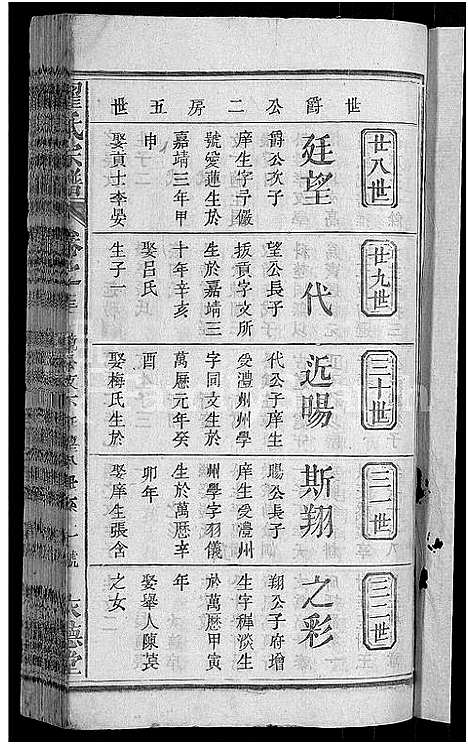 世爵公二房五世
廿八世
廷望
爵公次子
庠生字子儼
號愛蓮生於
嘉靖三年甲
申
娶貢士李晏
廿九世
代
望公長子
拔貢字文所
生於嘉靖三
十年辛亥
娶呂氏
生子一
三十世
近暘
代公子庠生
受澧州州學
字同支生於
萬厯元年癸
酉
娶梅氏生於
三一世
斯翔
暘公長子
庠生受澧州
州學字羽儀
生於萬厯辛
卯年
娶庠生張含
三二世
之彩
翔公子府增
生字穉淡生
於萬厯甲寅
年
娶舉人陳萸
之女
氏宗譜